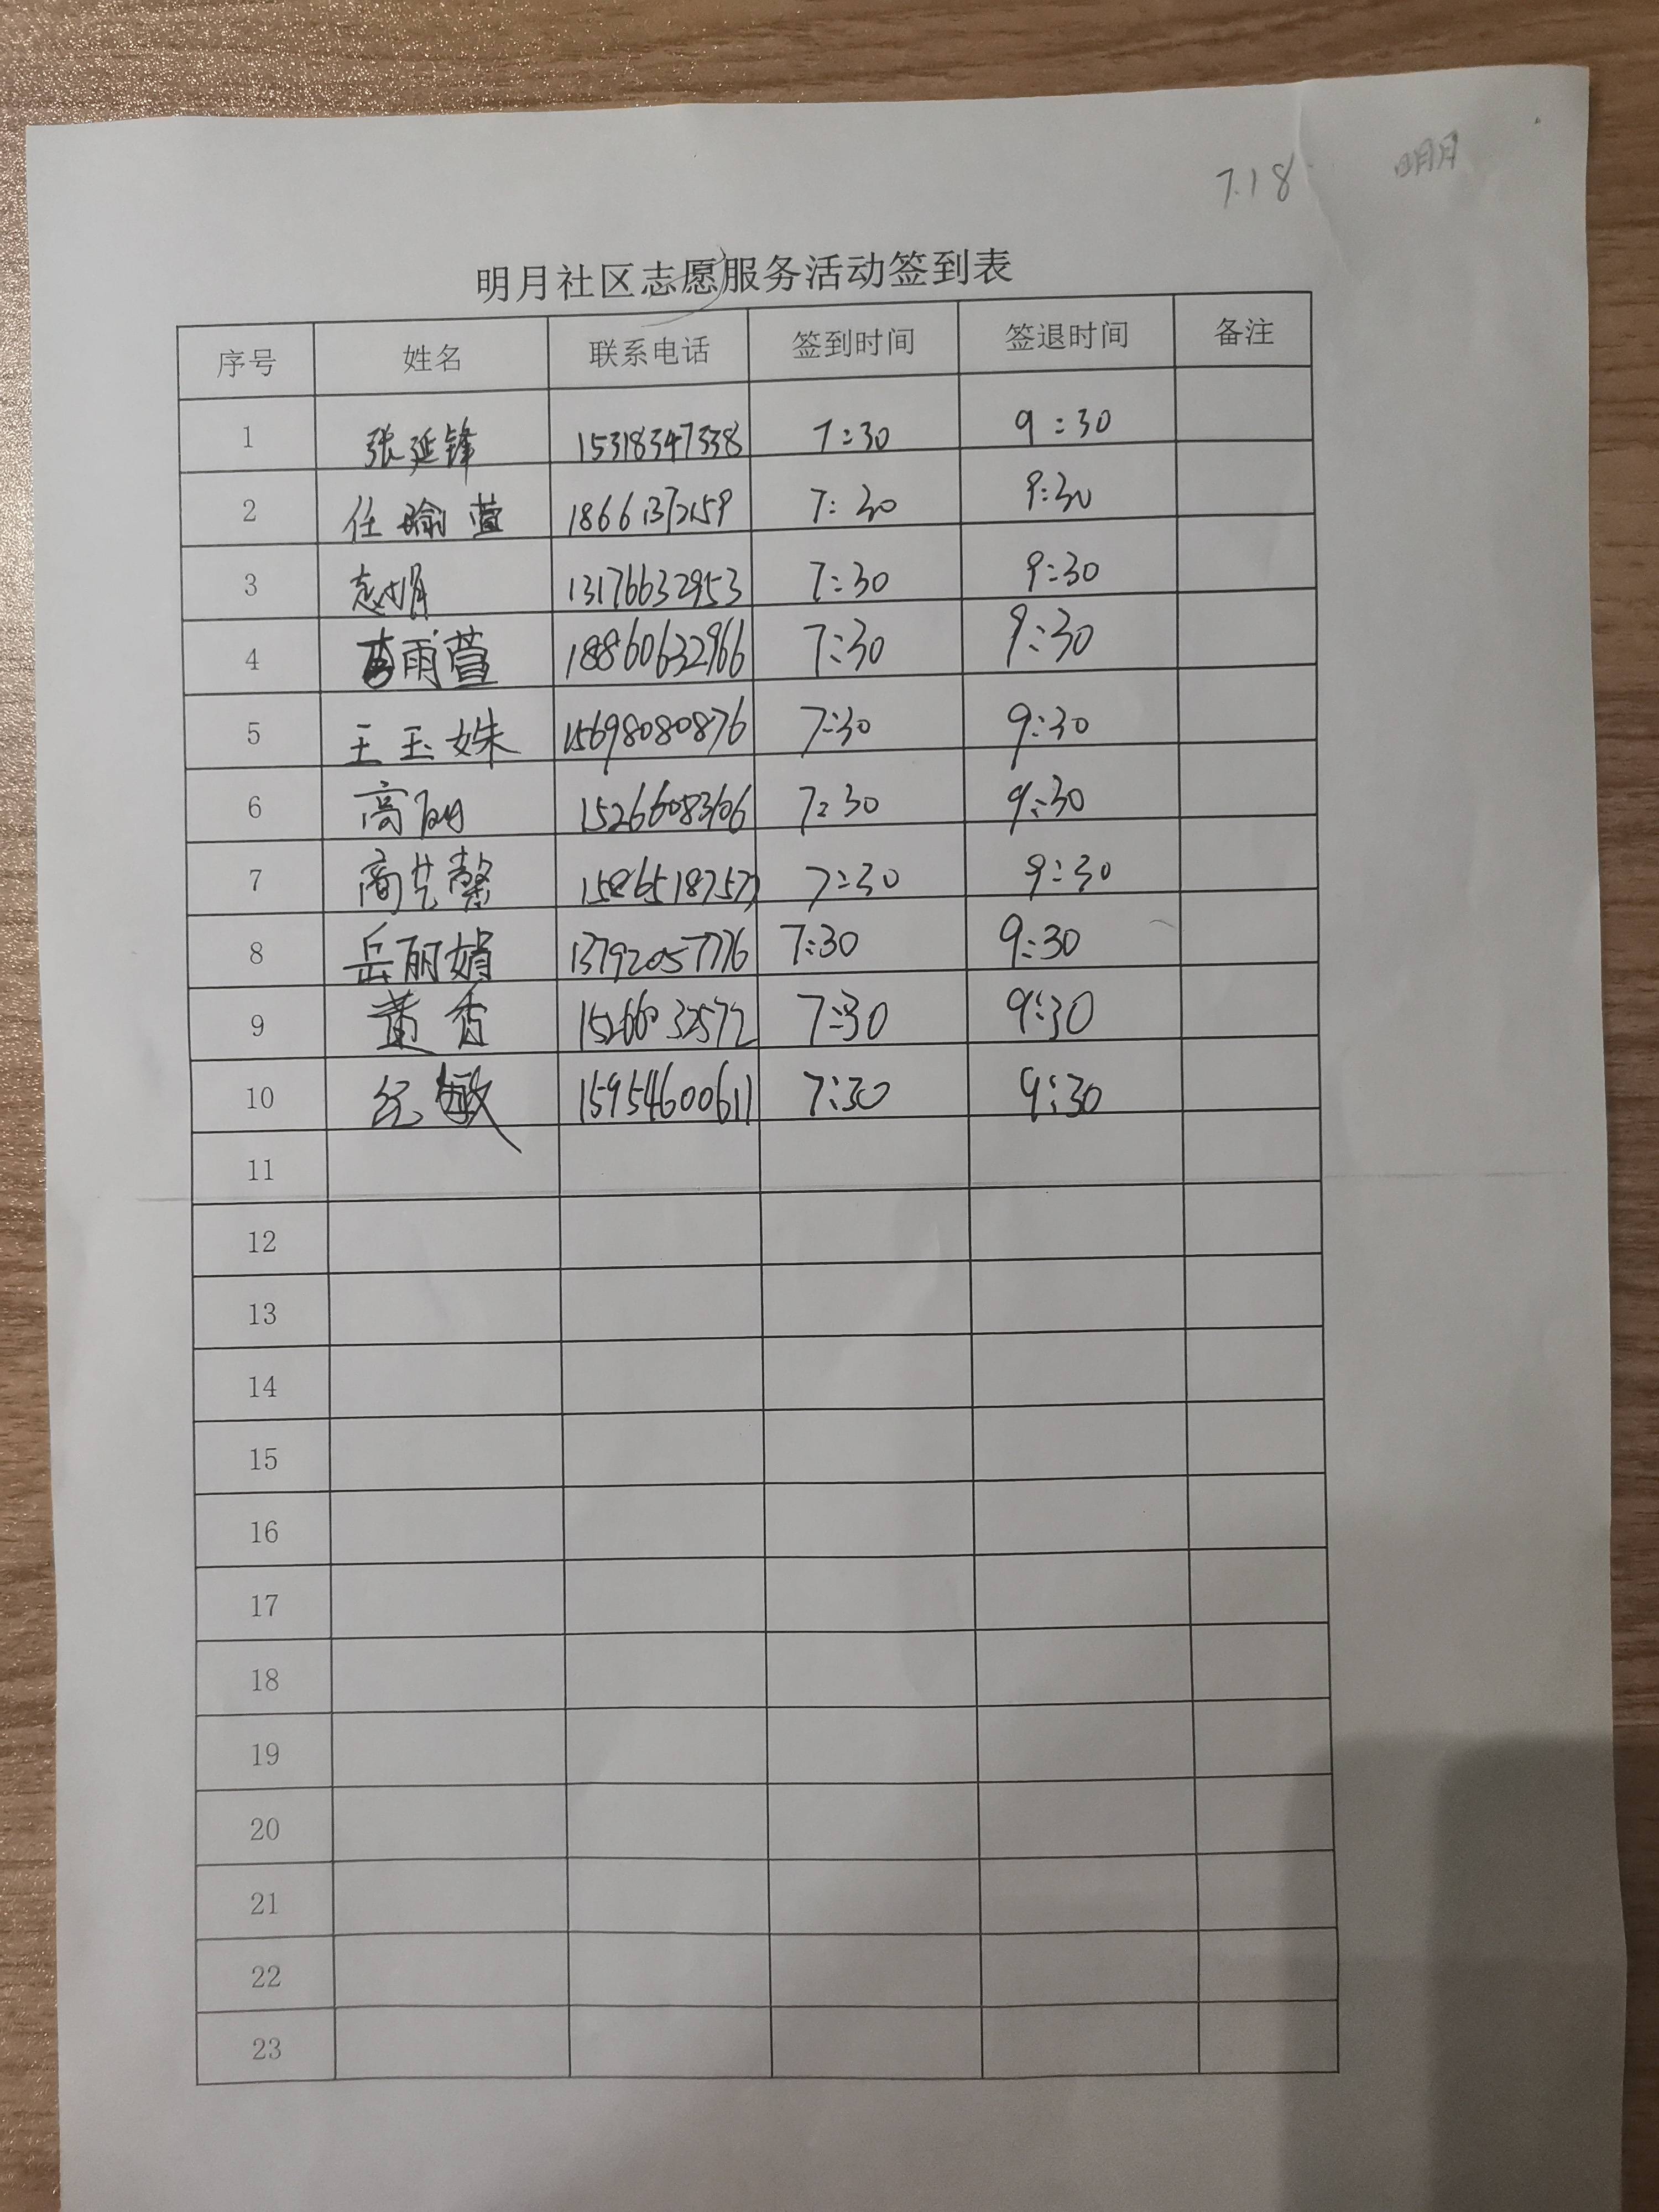 7.18 明月
明月社区志愿服务活动签到表
序号 姓名 联系电话 签到时间 签退时间 备注
1 张延锋 15318347338 7:30 9:30
2 任瑜萱 18661372159 7:30 9:30
3 13176632953 7:30 9:30
4 雨萱 18860632966 7:30 9:30
5 王玉姝 15698080876 7:30 9:30
6 高丽 15266083606 7:30 9:30
7 商艺馨 7:30 9:30
8 岳丽娟 13792057776 7:30 9:30
9 黄香 15266032572 7:30 9:30
10 纪敏 15954600611 7:30 9:30
11
12
13
14
15
16
17
18
19
20
21
22
23